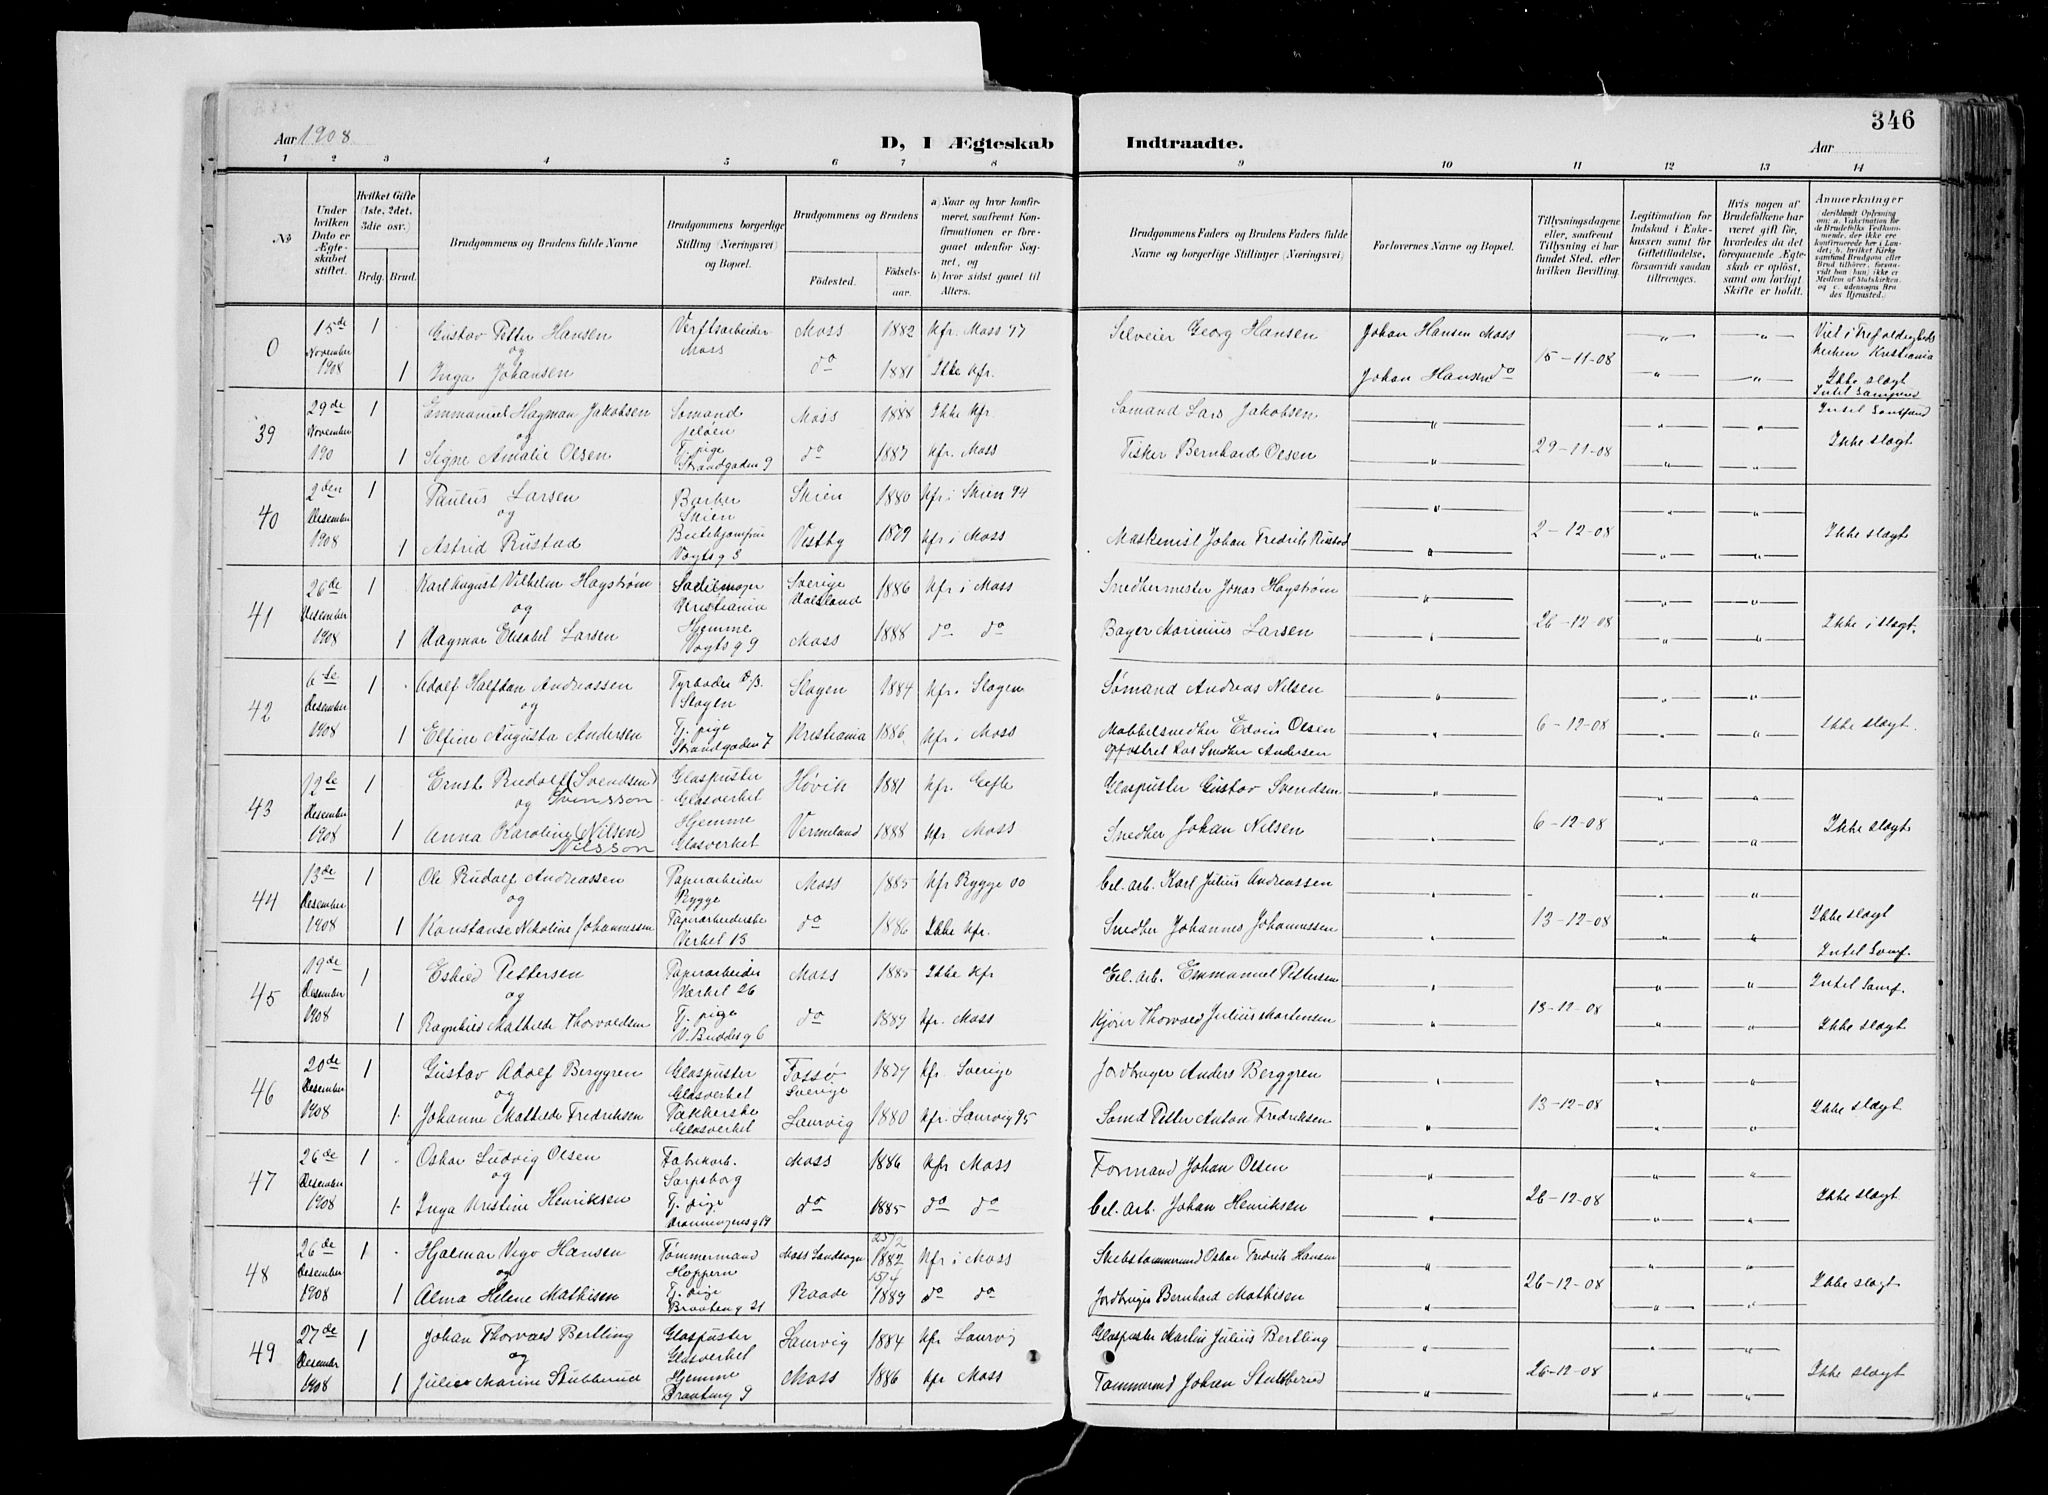 346
Aar 1908
D, I Ægteskab Indtraadte.
Aar
1 2 3 4 5 6 7 8 9 10 11 12 13 14
No
Under hvilken Dato er Ægteskabet stiftet.
Hvilket Gifte (1ste, 2det, 3die osv.)
Brdg. Brud.
Brudgommens og Brudens fulde Navne
Brudgommens borgerlige Stilling (Næringsvei) og Bopæl.
Brudgommens og Brudens
Födested. Födselsaar.
a) Naar og hvor konfirmeret, saafremt Konfirmationen er foregaaet udenför Sognet, og b) hvor sidst gaaet til Alters.
Brudgommens Faders og Brudens Faders fulde Navne og borgerlige Stillinger (Næringsvei)
Forlovernes Navne og Bopæl.
Tillysningsdagene eller, saafremt Tillysning ei har fundet Sted, efter hvilken Bevilling.
Legitimation for Indskud i Enkekassen samt for Giftetilladelse, forsaavidt saadan tiltrænges.
Hvis nogen af Brudefolkene har været gift för, hvorledes da det foregaaende Ægteskab er oplöst, samt om lovligt Skifte er holdt.
Anmærkninger
0 15de November 1908 1 Gustav Petter Hansen Verftsarbeider Moss Moss 1882 Kfr. Moss 97 Selveier Georg Hansen Johan Hansen Moss 15-11-08 Viet i Trefoldigheds kirken Kristiania
og
1 Inga Johansen do 1881 Ikke kfr. Johan Hansen do Ikke slægt
39 29de November 190 1 Emmanuel Hagman Jakobsen Sømand Jeløen Moss 1888 Ikke kfr Sømand Lars Jakobsen 29-11-08
og
1 Signe Amalie Olsen Tj. pige Strandgaden 9 do 1887 Kfr. Moss Fisker Bernhard Olsen Ikke slægt
40 2den Desember 1908 1 Paulus Larsen Barber Skien Skien 1880 Kfr i Skien 94 2-12-08
og
1 Astrid Rustad Vogts g 3 Vestby 1879 Kfr i Moss Maskenist Johan Fredrik Rustad Ikke slægt
41 26de Desember 1908 1 Karl August Vilhelm Hagstrøm Sadelmager Kristiania Sverige Dalsland 1886 Kfr i Moss Smedhermester Jonas Hagstrøm 26-12-08
og
1 Dagmar Elisabet Larsen Hjemme Vogts g 9 Moss 1888 do do Bager Marinius Larsen Ikke i slægt.
42 6te Desember 1908 1 Adolf Halfdan Andreassen Fyrbøder D/S. Slagen Slagen 1884 Kfr. Slagen Sømand Andreas Nilsen 6-12-08
og
1 Elfine Augusta Andersen Tj. pige Strandgaden 7 Kristiania 1886 Kfr. i Moss Møbbelsnedker Edvin Olsen
opfostret hos Snedker Andersen Ikke slægt
43 12te Desember 1908 1 Ernst Rudolf (Svendsen) Svensson Glaspuster Glasverket Høvik 1881 Kfr. Gefle Glaspuster Gustav Svendsen 6-12-08
og
1 Anna Karoline (Nilsen) Nilsson Hjemme Glasverket Vermeland 1888 Kfr Moss Snedker Johan Nilsen Ikke slægt
44 13de Desember 1908 1 Ole Rudolf Andreassen Papirarbeider Rygge Moss 1885 Kfr Rygge 00 Cel. arb. Karl Julius Andreassen 13-12-08
og
1 Konstanse Nikoline Johannessen Papirarbeiderske Verket 13 do 1886 Ikke kfr. Snedker Johannes Johannessen Ikke slægt
Intel Samf.
45 19de Desember 1908 1 Eskild Pettersen Papirarbeider Værket 26 Moss 1885 Ikke kfr Cel. Arb. Emmanuel Pettersen 13-12-08 Intel Samf.
og
1 Ragnhild Mathilde Thorvaldsen Tj. pige V. Buddes g 6 do 1887 Kfr. Moss Kjører Thorvald Julius Mortensen Ikke slægt
46 20de Desember 1908 1 Gustav Adolf Berggren Glaspuster Glasverket Fossø Sverige 1879 Kfr. Sverige Jordbruger Anders Berggren 13-12-08
og
1 Johanne Mathilde Fredriksen Pakkerske Glasverket Laurvig 1880 Kfr. Laurvig 95 Sømd Petter Anton Fredriksen Ikke slægt
47 26de Desember 1908 1 Oskar Ludvig Olsen Fabrikarb. Sarpsborg Moss 1886 Kfr Moss Formand Johan Olsen 26-12-08
og
1 Inga Kristine Henriksen Tj. pige Dronningensg 19 do 1885 do do Cel. arb. Johan Henriksen Ikke slægt
48 26de Desember 1908 1 Hjalmar Vigo Hansen Tømmermand Hoppern Moss Landsogn 25/2 1882 Kfr i Moss Skibstømmermd Oskar Fredrik Hansen 26-12-08
og
1 Alma Helene Mathisen Tj. pige Braaten g 21 Raade 15/4 1889 do do Jordbruger Bernhard Mathisen Ikke slægt
49 27de Desember 1908 1 Johan Thorvald Bertling Glaspuster Glasverket Laurvig 1884 Kfr Laurvig Glaspuster Martin Julius Bertling 26-12-08
og
1 Julie Marine Stubberud Hjemme Braateng 9 Moss 1886 Kfr Moss Tømmermd Johan Stubberud Ikke slægt